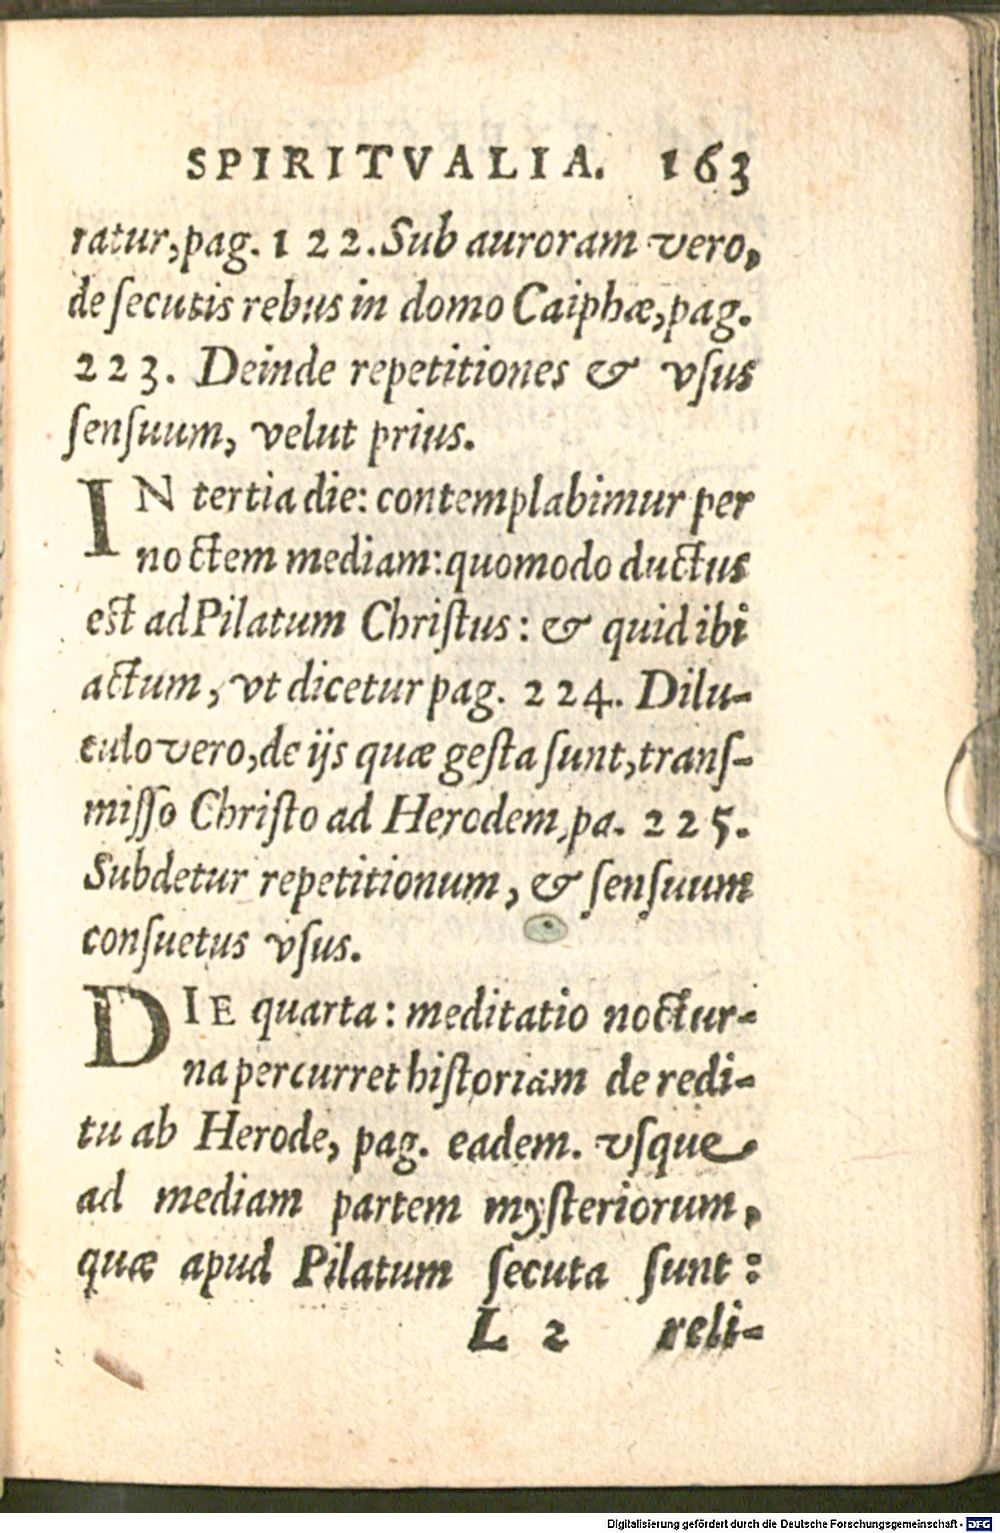 SPIRITVALIA. 163
ratur, pag. 122. Sub auroram vero,
de ſecutis rebus in domo Caiphæ, pag.
223. Deinde repetitiones & vſus
ſenſuum, velut prius.
IN tertia die: contemplabimur per
noctem mediam: quomodo ductus
eſt ad Pilatum Chriſtus: & quid ibi
actum, vt dicetur pag. 224. Dilu-
culo vero, de ijs quæ geſta ſunt, tranſ-
miſſo Chriſto ad Herodem, pa. 225.
Subdetur repetitionum, & ſenſuum
conſuetus vſus.
DIE quarta: meditatio noctur-
na percurret hiſtoriam de redi-
tu ab Herode, pag. eadem. vſque
ad mediam partem myſteriorum,
quæ apud Pilatum ſecuta ſunt:
L 2 reli-
Digitalisierung gefördert durch die Deutsche Forschungsgemeinschaft - DFG